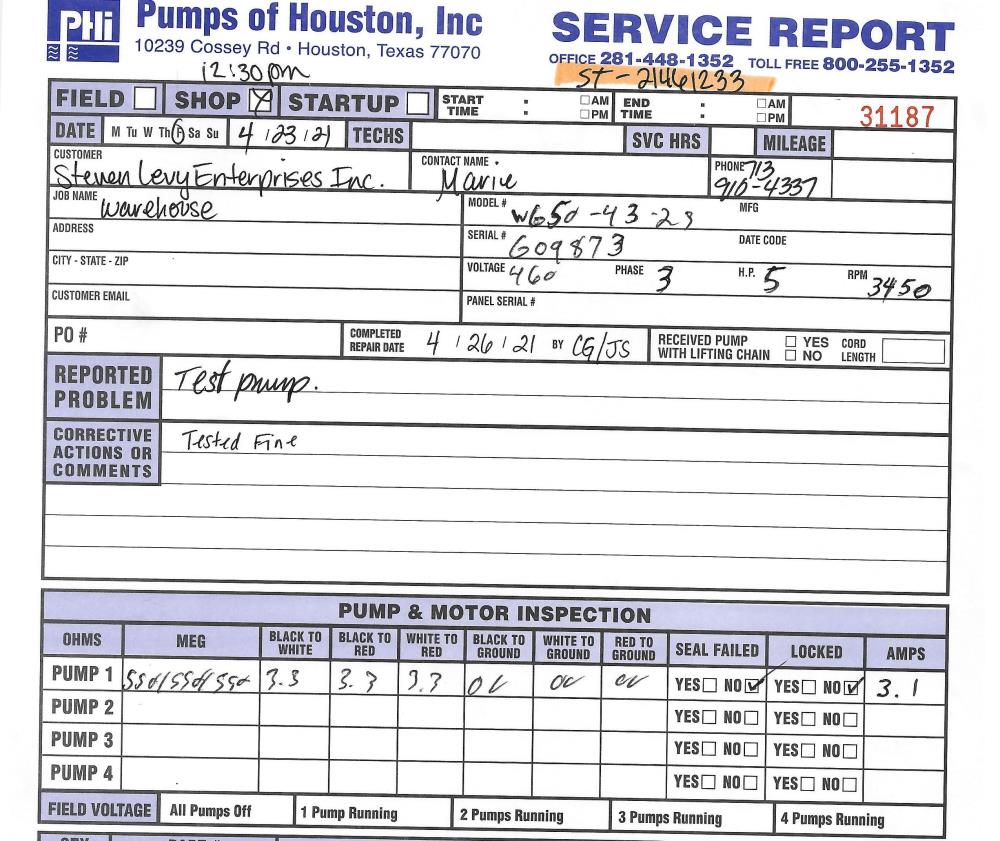 PHi Pumps of Houston, Inc
10239 Cossey Rd • Houston, Texas 77070
SERVICE REPORT
OFFICE 281-448-1352 TOLL FREE 800-255-1352
12:30pm
ST - 21461233
FIELD SHOP STARTUP START TIME : AM PM END TIME : AM PM 31187
DATE M Tu W Th F Sa Su 4/23/21 TECHS SVC HRS MILEAGE
CUSTOMER Steven Levy Enterprises Inc. CONTACT NAME Marie PHONE 713 910-4337
JOB NAME warehouse MODEL # W650-43-23 MFG
ADDRESS SERIAL # G09873 DATE CODE
CITY - STATE - ZIP VOLTAGE 460 PHASE 3 H.P. 5 RPM 3450
CUSTOMER EMAIL PANEL SERIAL #
PO # COMPLETED REPAIR DATE 4/26/21 BY CG/JS RECEIVED PUMP WITH LIFTING CHAIN YES NO CORD LENGTH
REPORTED PROBLEM Test pump.
CORRECTIVE ACTIONS OR COMMENTS Tested Fine
PUMP & MOTOR INSPECTION
OHMS MEG BLACK TO WHITE BLACK TO RED WHITE TO RED BLACK TO GROUND WHITE TO GROUND RED TO GROUND SEAL FAILED LOCKED AMPS
PUMP 1 550/550/550 3.3 3.3 3.3 OL OL OL YES NO YES NO 3.1
PUMP 2 YES NO YES NO
PUMP 3 YES NO YES NO
PUMP 4 YES NO YES NO
FIELD VOLTAGE All Pumps Off 1 Pump Running 2 Pumps Running 3 Pumps Running 4 Pumps Running